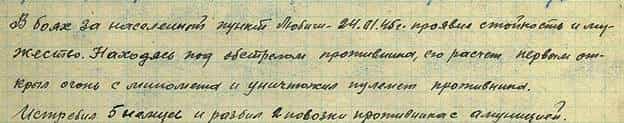 В боях за населенный пункт Любичи - 24.01.45г. проявил стойкость и му-
жество. Находясь под обстрелом противника, его расчет первым от-
крыл огонь с миномета и уничтожил пулемет противника.
Истребил 5 немцев и разбил 2 повозки противника с амуницией.